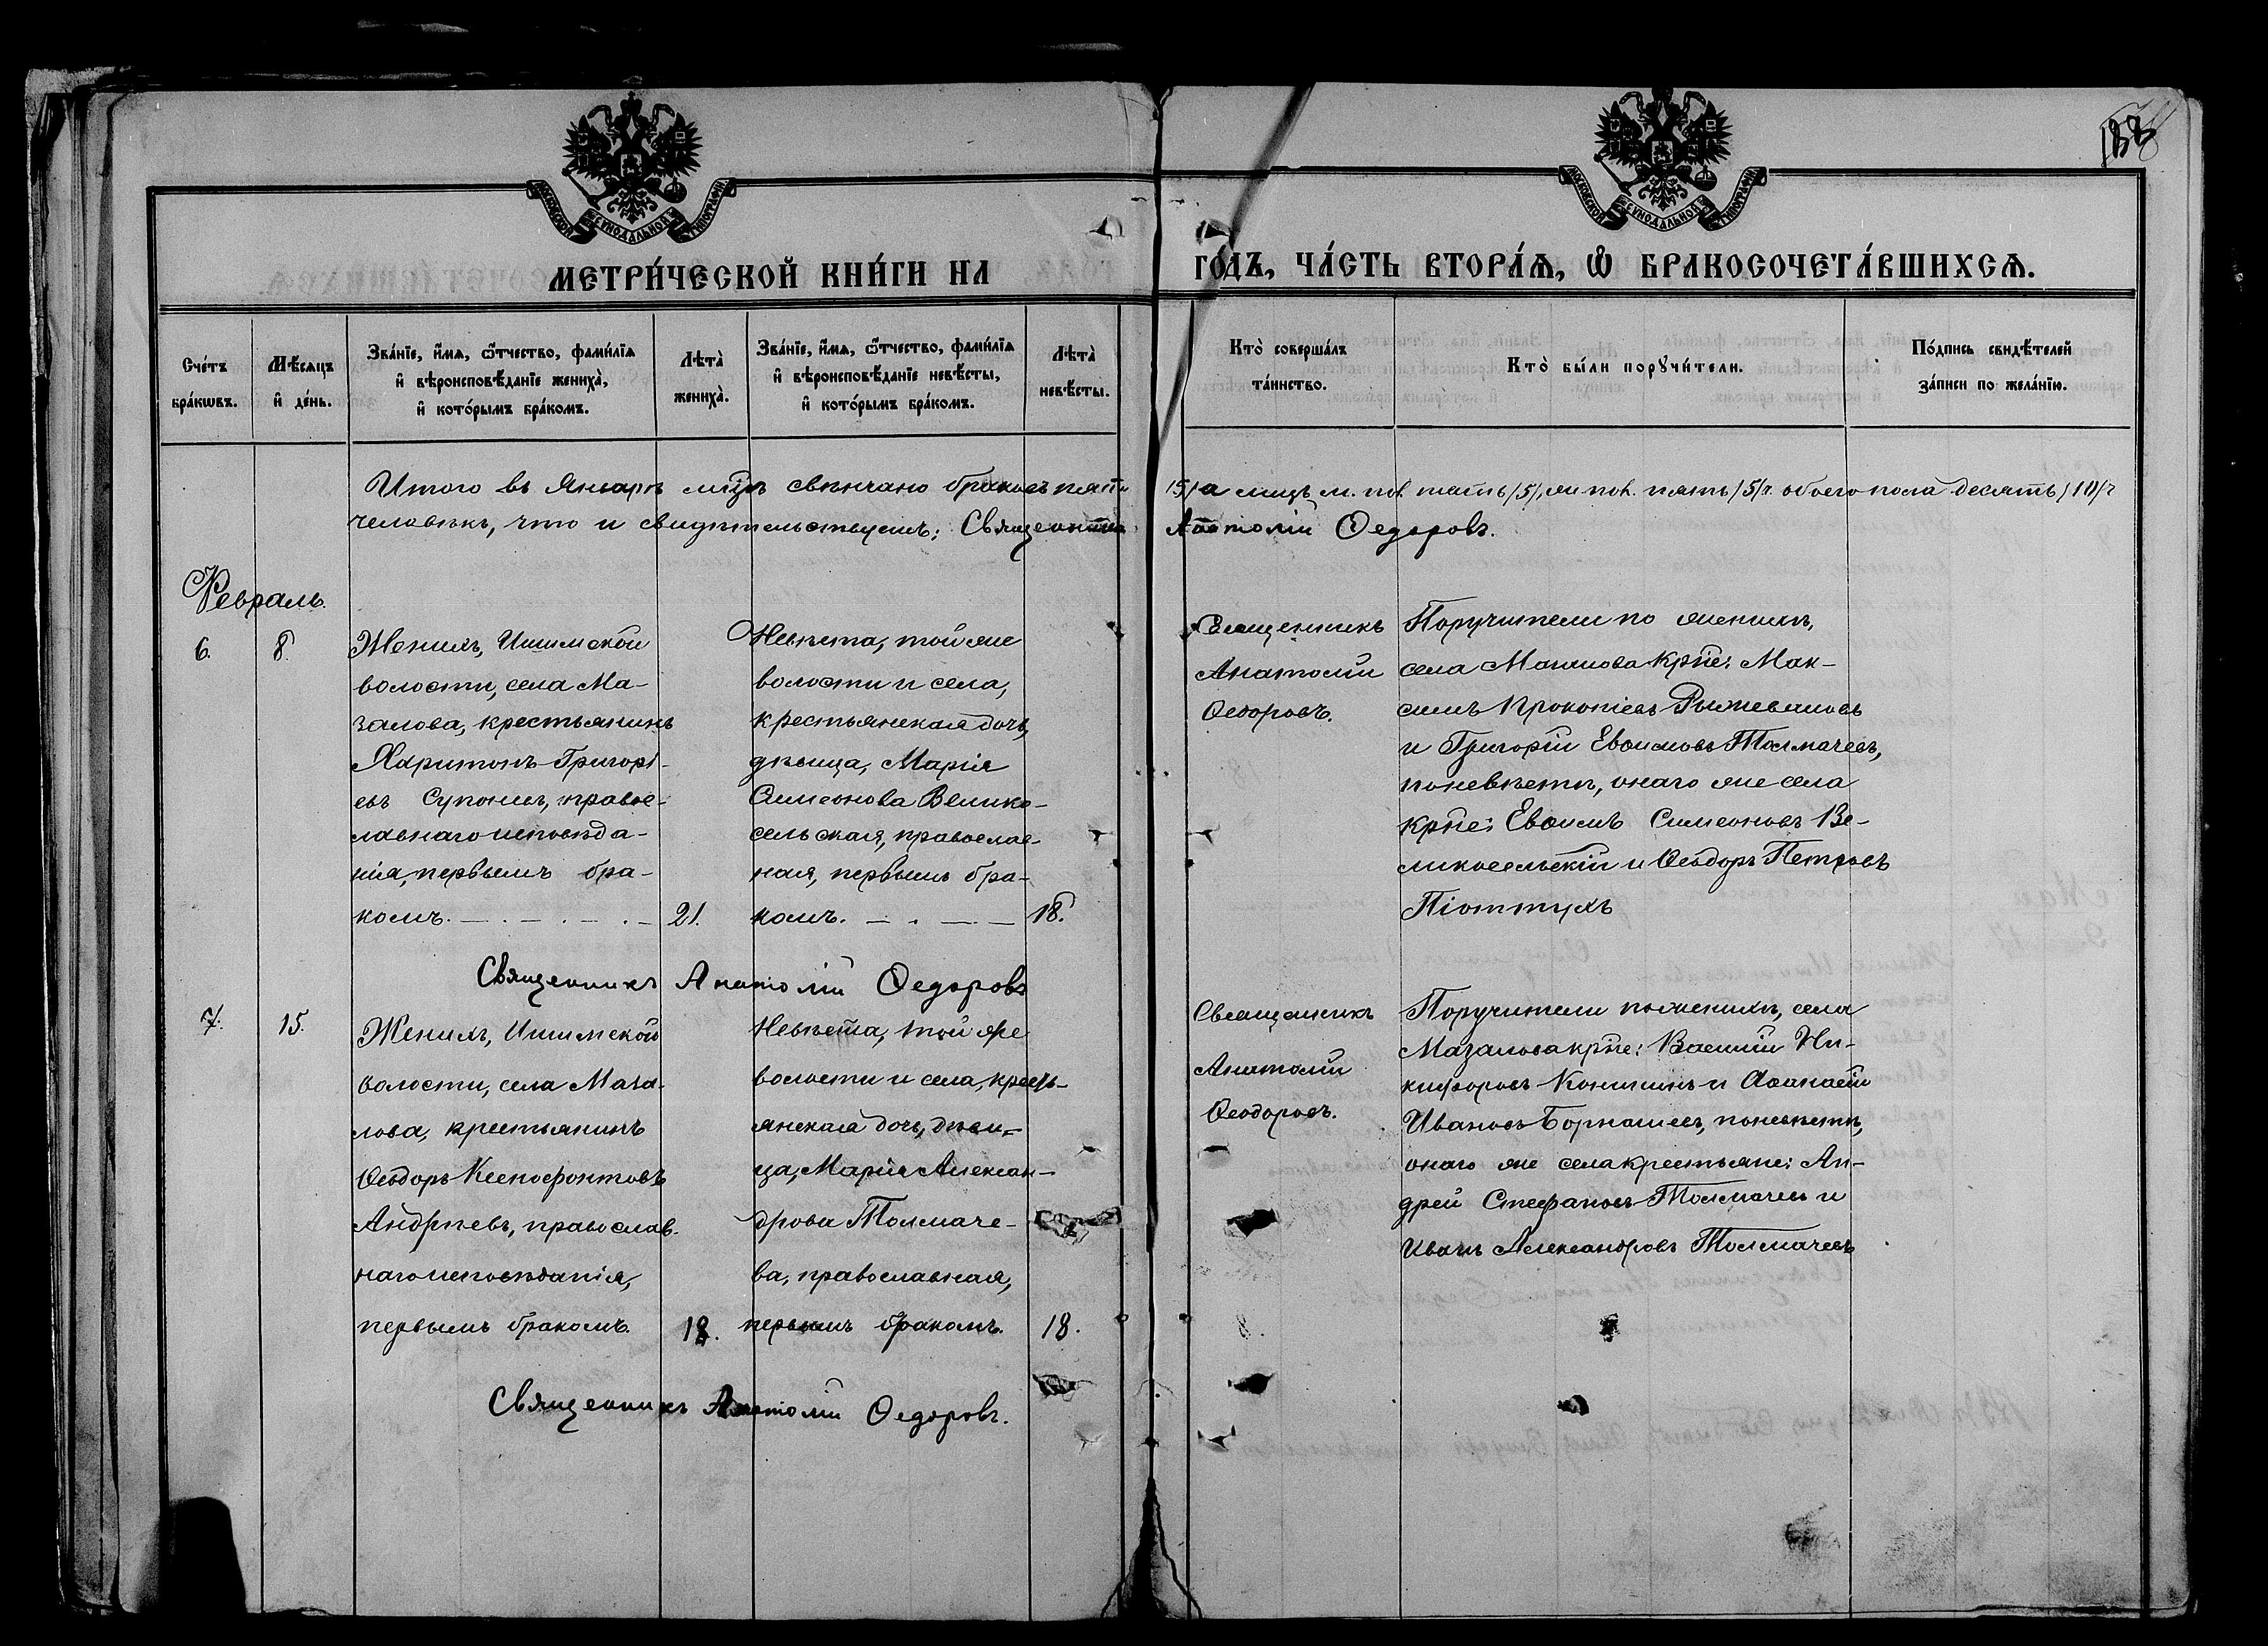 МОСКОВСКОЙ СѴНОДАЛЬНОЙ ТИПОГРАФІИ
МОСКОВСКОЙ СѴНОДАЛЬНОЙ ТИПОГРАФІИ
МЕТРИ́ЧЕСКОЙ КНИ́ГИ НА ГО́ДЪ, ЧА́СТЬ ВТОРА́Ѧ, Ѽ БРАКОСОЧЕТА́ВШИХСѦ.
Сче́тъ бра́кѡвъ.
Мѣ́сѧцъ и҆ де́нь.
Зва́нїе, и҆́мѧ, ѻ҆́тчество, фами́лїѧ
и҆ вѣроисповѣ́данїе жениха̀,
и҆ кото́рымъ бра́комъ.
Лѣта̀ жениха̀.
Зва́нїе, и҆́мѧ, ѻ҆́тчество, фами́лїѧ
и҆ вѣроисповѣ́данїе невѣ́сты,
и҆ кото́рымъ бра́комъ.
Лѣта̀ невѣ́сты.
Кто̀ соверша́лъ та́инство.
Кто̀ бы́ли порꙋчи́тели.
По́дпись свидѣ́телей за́писи по жела́нїю.
Итого въ Январѣ мцѣ свѣнчано браковъ пять /5/ а лицъ м. пол. пять /5/, жен. пол. пять /5/. обоего пола десять /10/
человѣкъ, что и свидѣтельствуемъ: Священникъ Анатолій Ѳедоровъ.
Февраль.
6.
8.
Женихъ, Ишимской
волости, села Ма-
залова, крестьянинъ
Харитонъ Григорі-
евъ Супонинъ, правос-
лавнаго исповѣда-
нія, первымъ бра-
комъ.
21.
Невѣста, той же
волости и села,
крестьянская дочь,
дѣвица, Марія
Симеонова Велико-
сельская, православ-
ная, первымъ бра-
комъ.
18.
Священникъ
Анатолій
Ѳеодоровъ.
Поручители по женихѣ,
села Мазалова крѣне: Мак-
симъ Прокопіевъ Рыжеваловъ
и Григорій Евѳимовъ Толмачевъ,
по невѣстѣ, онаго же села
крѣне: Евѳимъ Симеоновъ Ве-
ликосельскій и Ѳеодоръ Петровъ
Піоттухъ
Священникъ Анатолій Ѳедоровъ
7.
15.
Женихъ, Ишимской
волости, села Маза-
лова, крестьянинъ
Ѳеодоръ Ксенофонтовъ
Андреевъ, православ-
наго исповѣданія,
первымъ бракомъ.
18.
Невѣста, той же
волости и села, кресть-
янская дочь, дѣви-
ца, Марія Алексан-
дрова Толмаче-
ва, православная,
первымъ бракомъ.
18.
Священникъ
Анатолій
Ѳеодоровъ.
Поручители по женихѣ, села
Мазалова крѣне: Василій Ни-
кифоровъ Коншинъ и Аѳанасій
Ивановъ Борнашевъ, по невѣстѣ,
онаго же села крестьяне: Ан-
дрей Стефановъ Толмачевъ и
Иванъ Александровъ Толмачевъ
Священникъ Анатолій Ѳедоровъ.